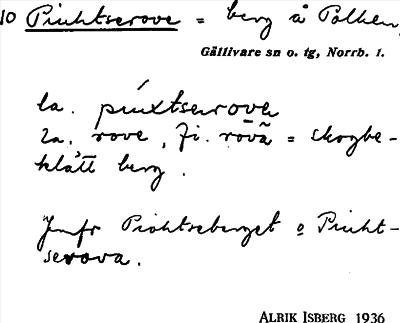 10 Piuhtserove = berg å Polken,
Gällivare sn o. tg, Norrb. l.
1a. píuxtserovɐ
2a. rove, fi. rovā = skogbe-
klätt berg.
Jmfr Piohtseberget o Piuht-
serova.
ALRIK ISBERG 1936